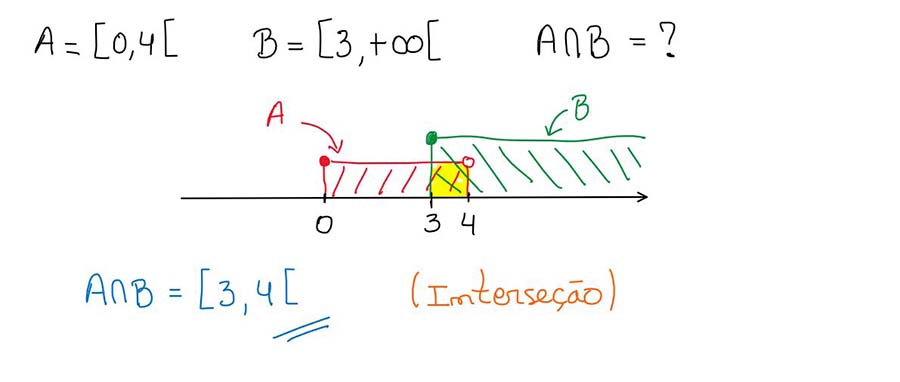 A = [0,4[ B = [3,+∞[ A∩B = ?
A B
0 3 4
A∩B = [3,4[ (Interseção)